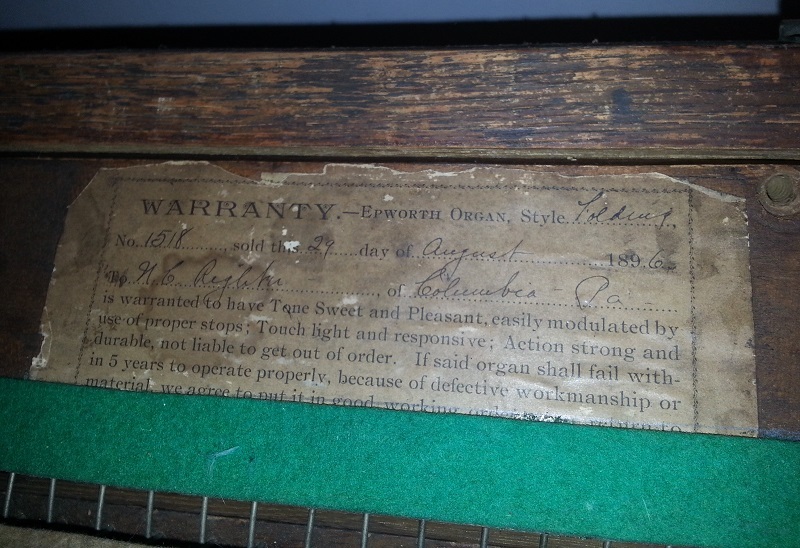 WARRANTY.—EPWORTH ORGAN, Style Folding
No. 1518, sold this 29 day of August 1896
To of Columbia - Pa
is warranted to have Tone Sweet and Pleasant, easily modulated by
use of proper stops; Touch light and responsive; Action strong and
durable, not liable to get out of order. If said organ shall fail with-
in 5 years to operate properly, because of defective workmanship or
material, we agree to put it in good working order return to